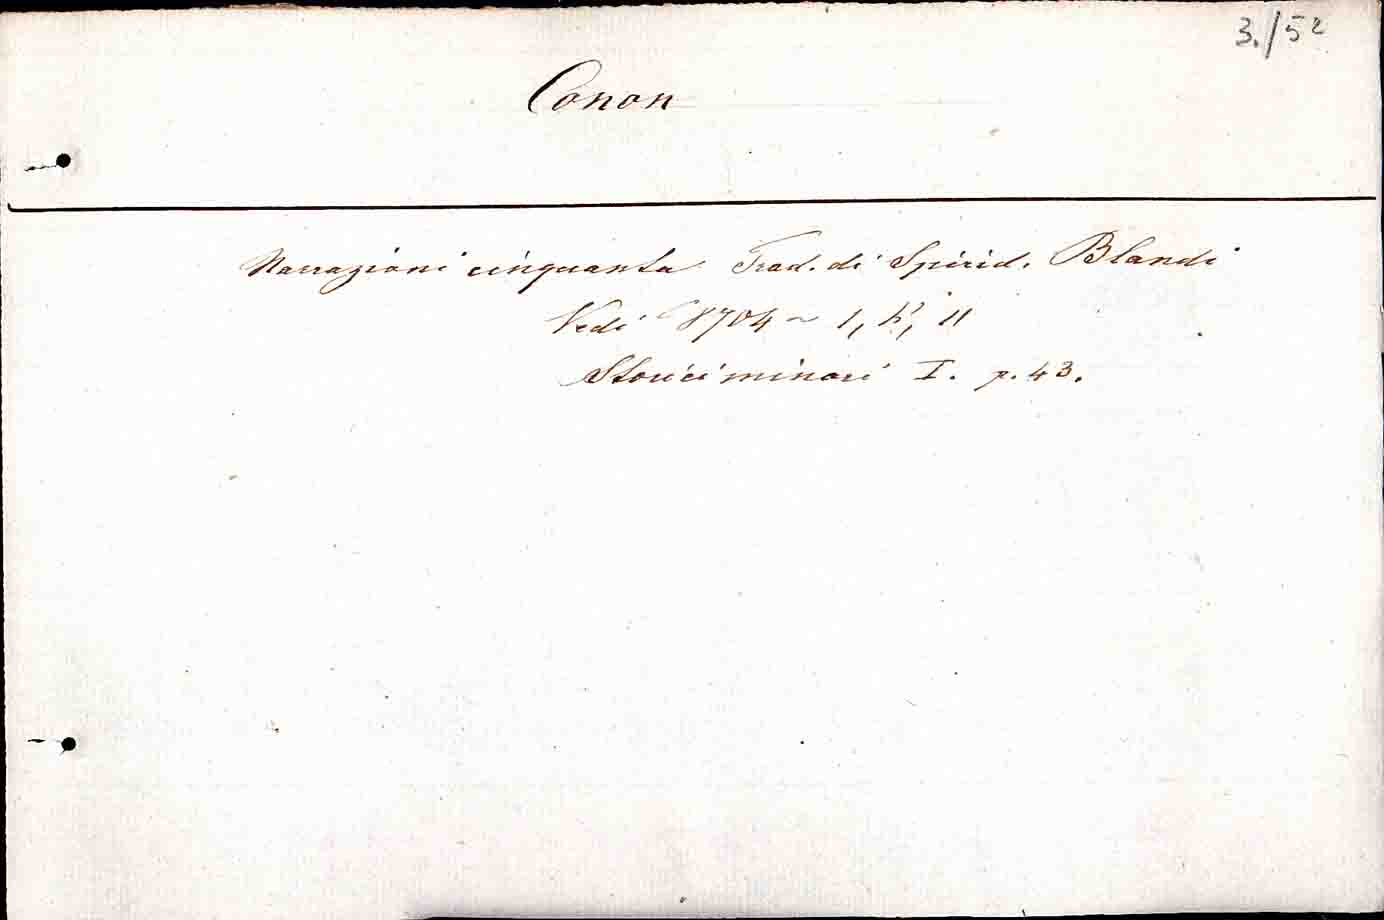 3./52
Conon
Narrazioni cinquanta Trad. di Spirid. Blandi
Vedi 8704 ~ 1, h', 11
Storici minori I. p. 43.